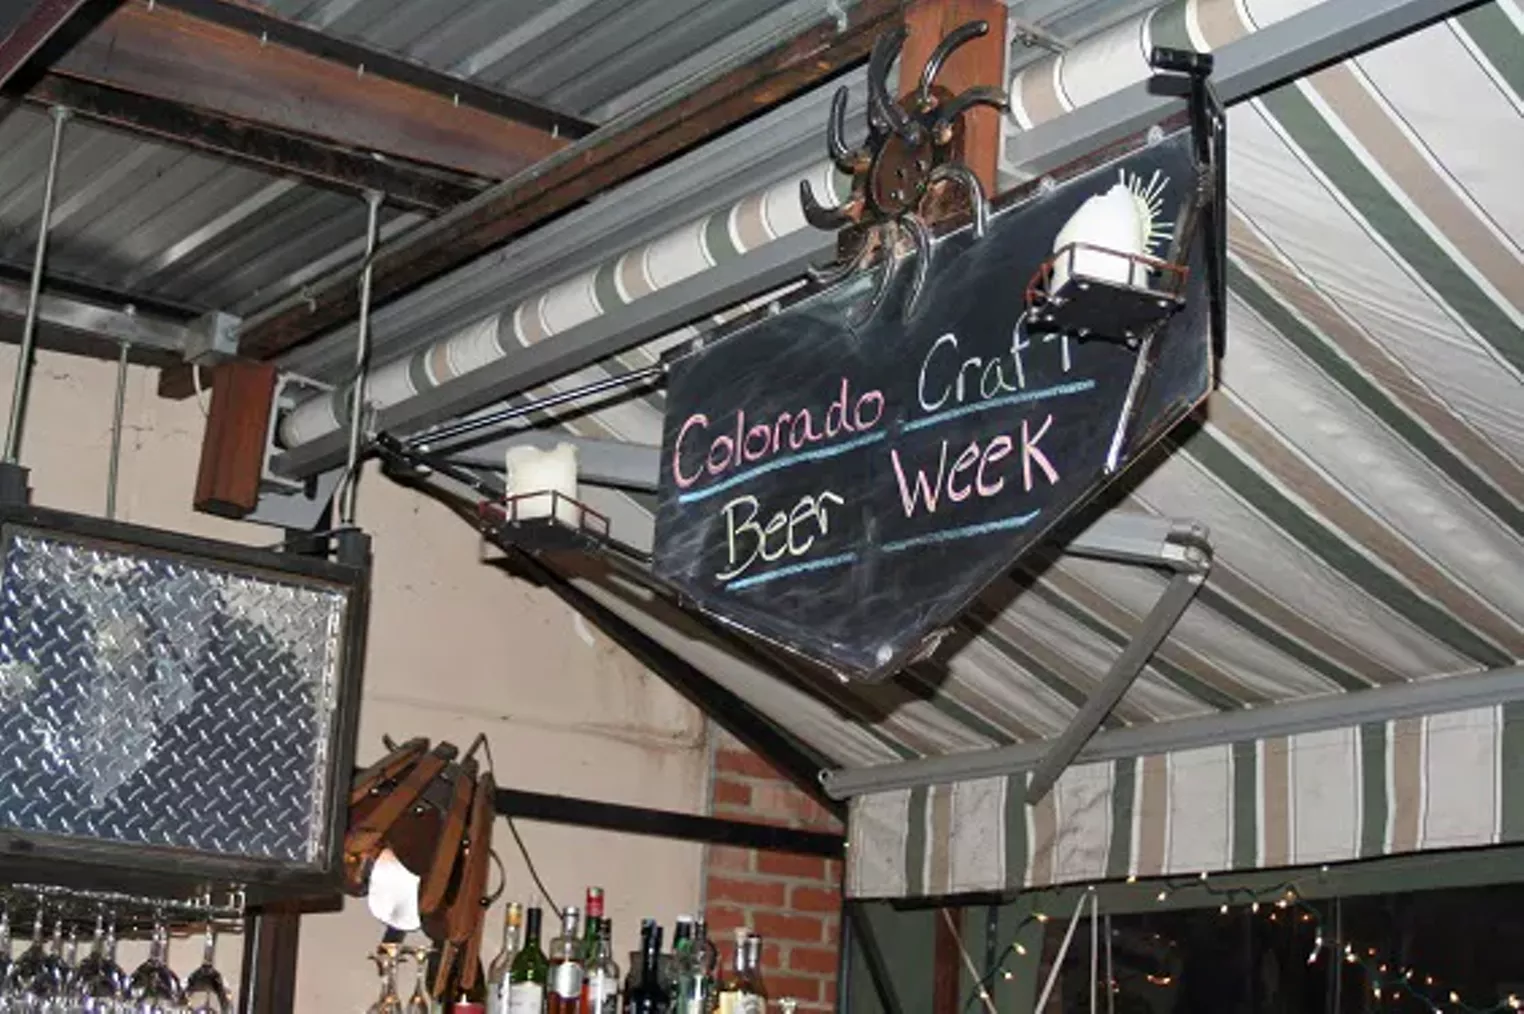 Colorado Craft
Beer Week